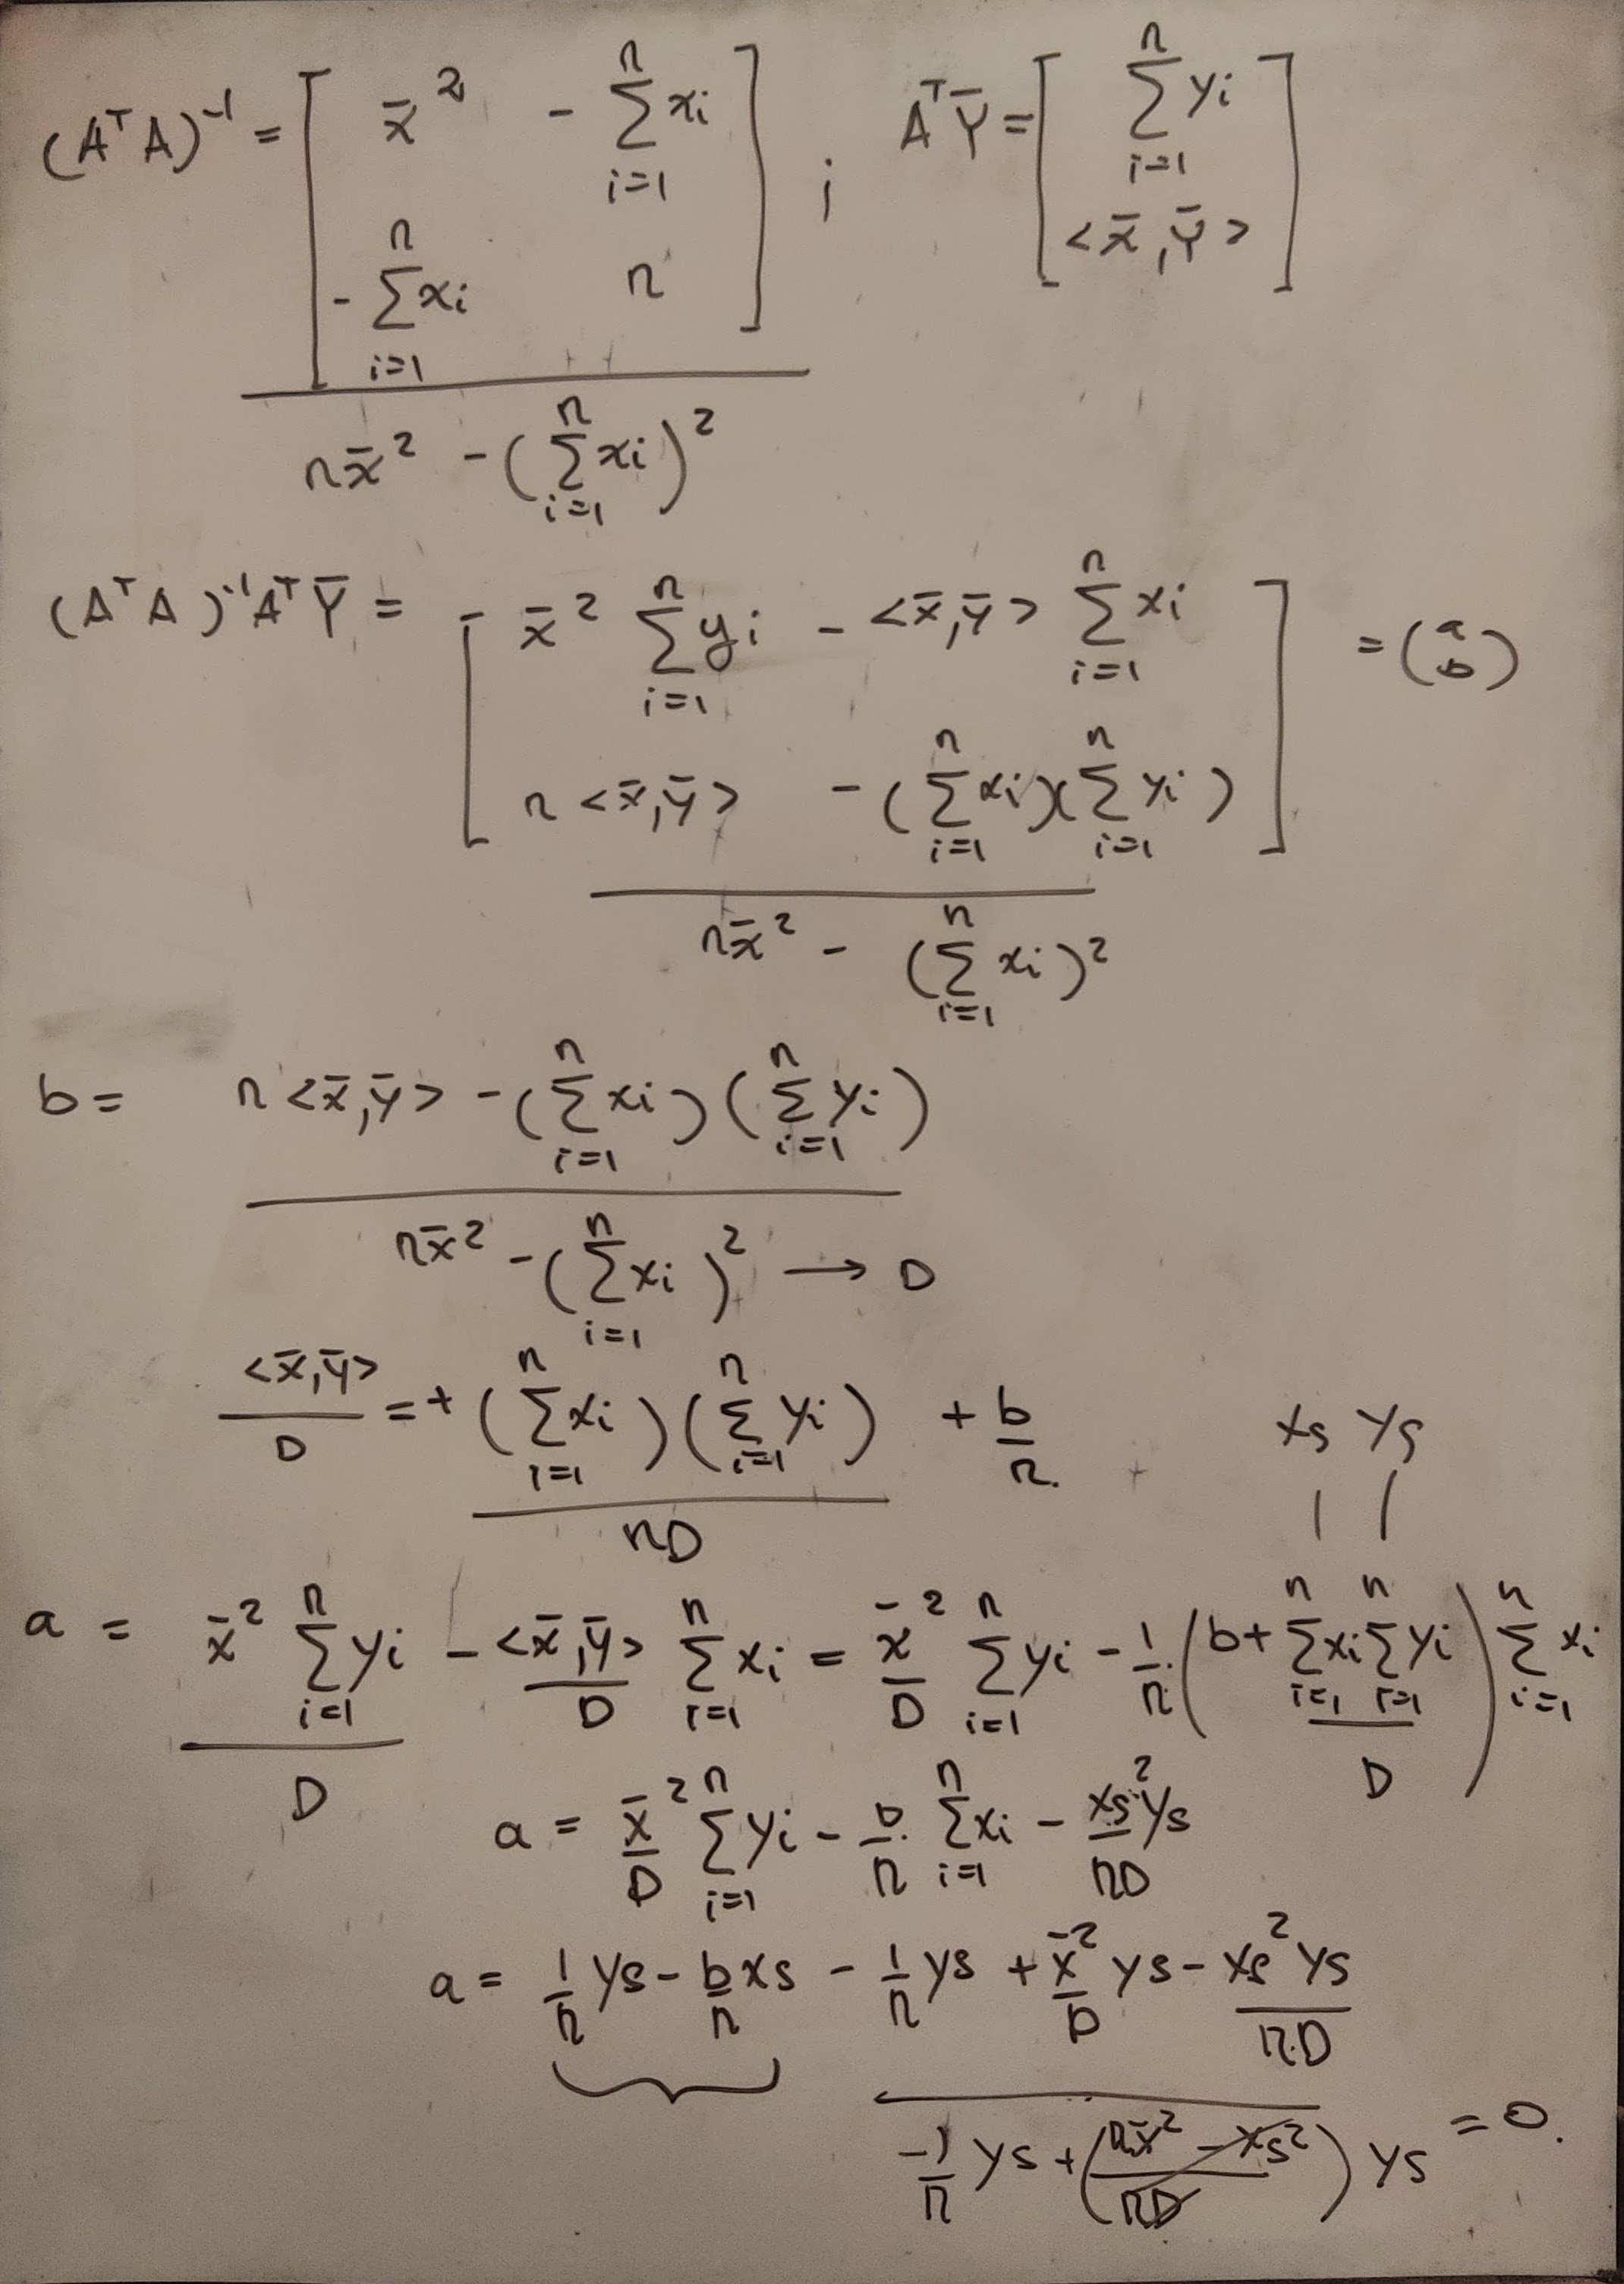 (AᵀA)⁻¹ = [ x̄² − Σᵢ₌₁ⁿ xᵢ ; − Σᵢ₌₁ⁿ xᵢ n ] / ( n x̄² − (Σᵢ₌₁ⁿ xᵢ)² ) ; AᵀȲ = [ Σᵢ₌₁ⁿ yᵢ ; <x̄, ȳ> ]
(AᵀA)⁻¹AᵀȲ = [ x̄² Σᵢ₌₁ⁿ yᵢ − <x̄,ȳ> Σᵢ₌₁ⁿ xᵢ ; n<x̄,ȳ> − (Σᵢ₌₁ⁿ xᵢ)(Σᵢ₌₁ⁿ yᵢ) ] / ( n x̄² − (Σᵢ₌₁ⁿ xᵢ)² ) = (a b)
b = ( n<x̄,ȳ> − (Σᵢ₌₁ⁿ xᵢ)(Σᵢ₌₁ⁿ yᵢ) ) / ( n x̄² − (Σᵢ₌₁ⁿ xᵢ)² ) → D
<x̄,ȳ>/D = + (Σᵢ₌₁ⁿ xᵢ)(Σᵢ₌₁ⁿ yᵢ) / nD + b/n
xs ys
a = x̄² Σᵢ₌₁ⁿ yᵢ / D − <x̄,ȳ>/D Σᵢ₌₁ⁿ xᵢ = x̄²/D Σᵢ₌₁ⁿ yᵢ − 1/n ( b + Σᵢ₌₁ⁿ xᵢ Σᵢ₌₁ⁿ yᵢ / D ) Σᵢ₌₁ⁿ xᵢ
a = x̄²/D Σᵢ₌₁ⁿ yᵢ − b/n Σᵢ₌₁ⁿ xᵢ − xs² ys / nD
a = 1/n ys − b/n xs − 1/n ys + x̄²/D ys − xs² ys / nD
−1/n ys + ( (n x̄² − xs²) / nD ) ys = 0.